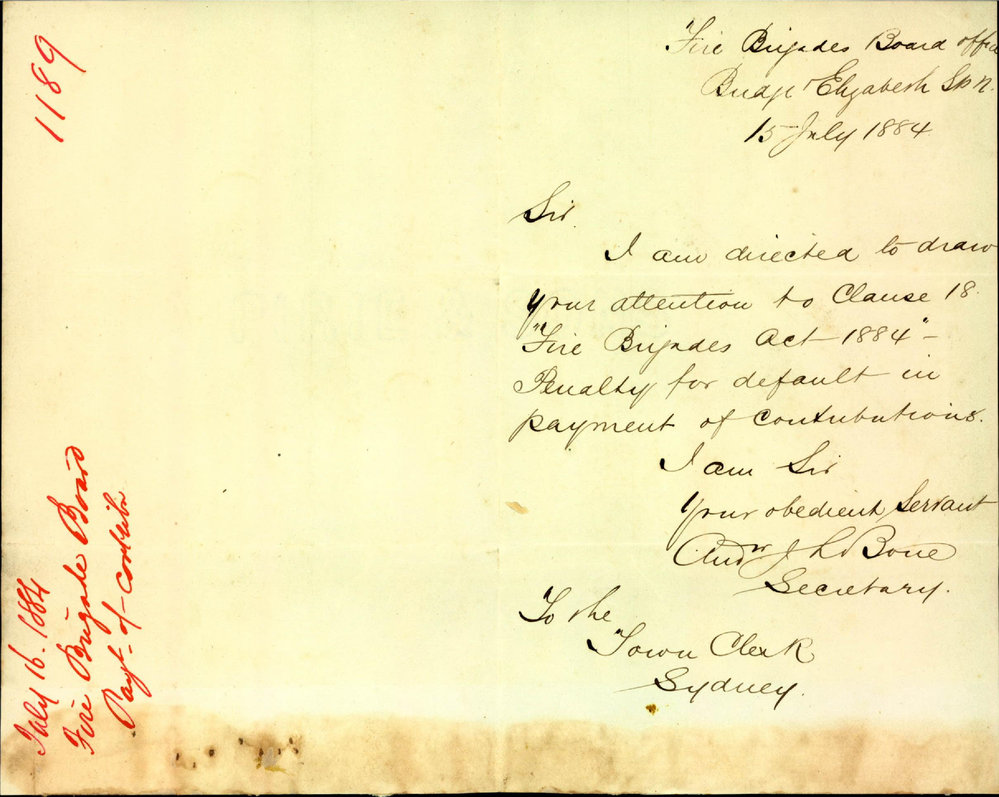 1189
July 16. 1884
Fire Brigade Board
Payt. of contribn
Fire Brigades Board office
Bridge & Elizabeth Sts
15 July 1884
Sir
I am directed to draw
your attention to Clause 18.
"Fire Brigades Act 1884" -
Penalty for default in
payment of contributions.
I am Sir
Your obedient Servant
Andw J L Bone
Secretary.
To the
Town Clerk
Sydney.